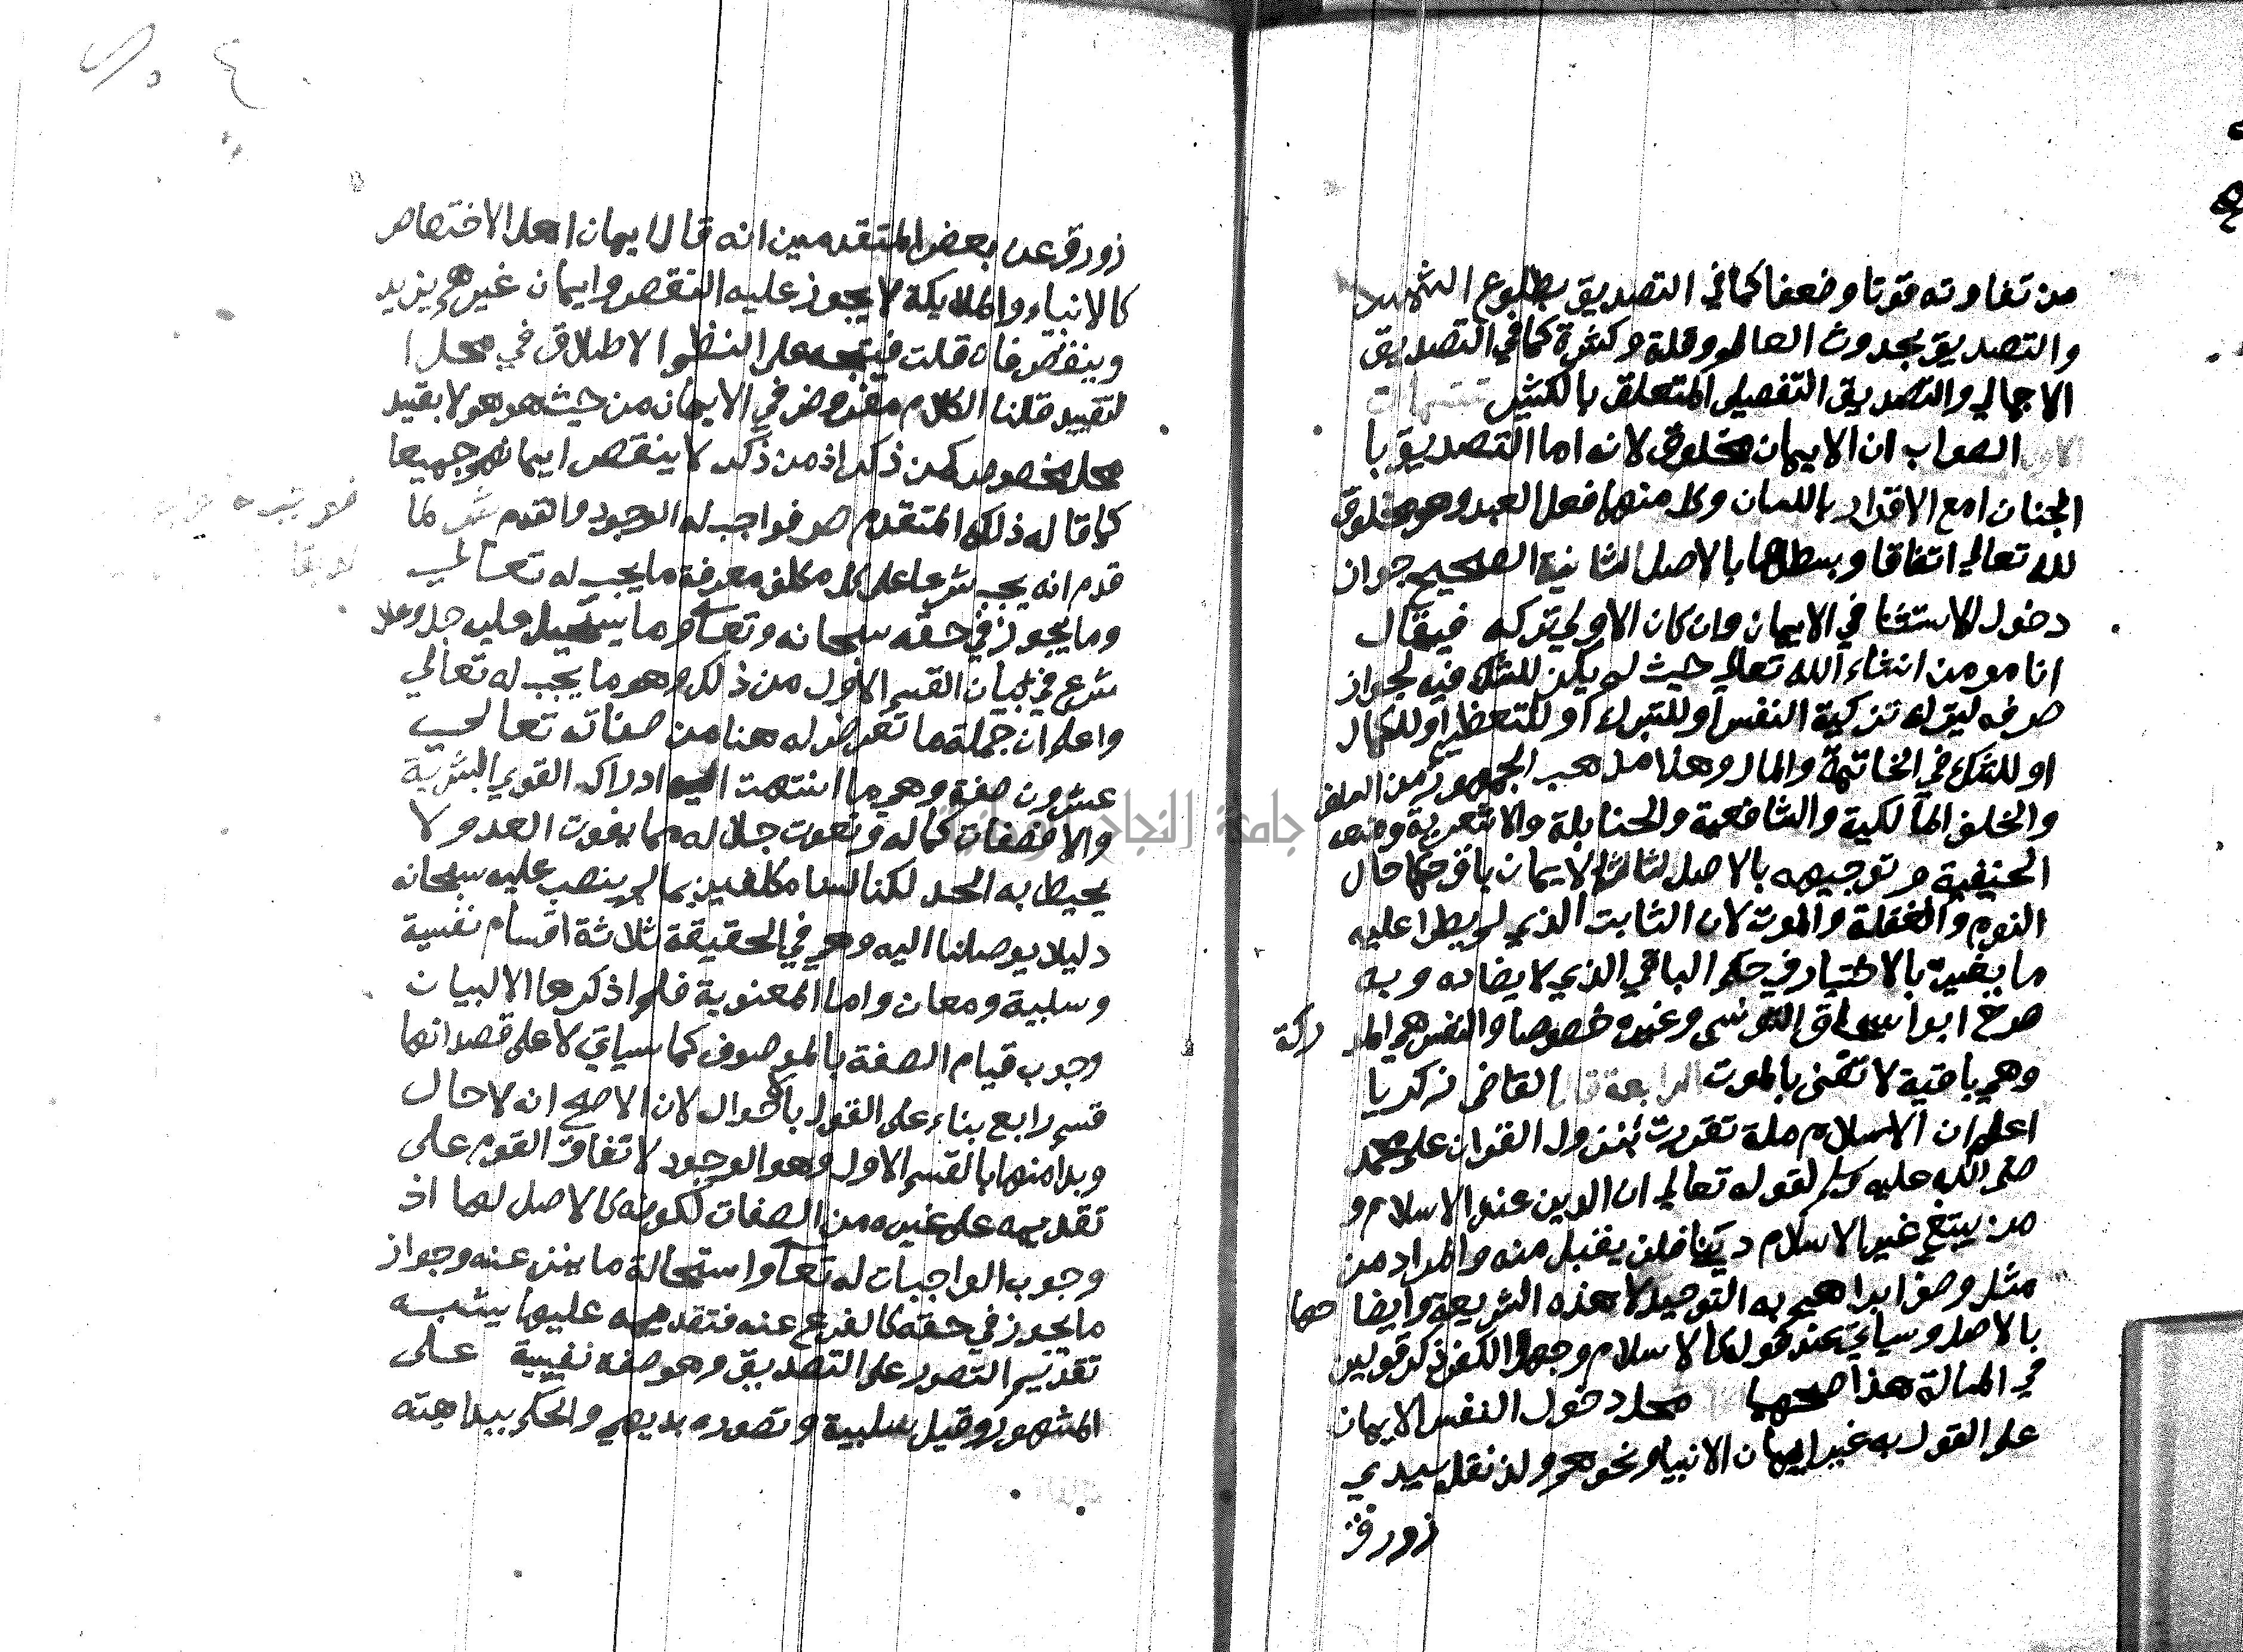 من تفاوته قوتا وضعفا كما في التصديق بطلوع الشمس
والتصديق بحدوث العالم وقلة وكثرة كما في التصديق
الاجمالي والتصديق التفصيلي المتعلق بالكثير تتمات
الصواب ان الايمان مخلوق لانه اما التصديق با
لجنان امع الاقرار باللسان وكل منهما فعل العبد وهو مخلوق
لله تعالي اتفاقا وبسطها بالاصل الثانية الصحيح جواز
دخول الاستثنا في الايمان وان كان الاولي تركه فيقال
انا مومن انشاء الله تعالي حيث لم يكن للشك فيه لجواز
صرفه ليترك تزكية النفس او للتبرك او للتعظيم او للكمال
او للشك في الخاتمة والمال وهذا مذهب الجمهور من السلف
والخلف المالكية والشافعية والحنابلة والاشعرية ومنعه
الحنفية وتوجيهه بالاصل الثالثة الايمان باق حكما حال
النوم والغفلة والموت لان الثابت الذي لم يطرا عليه
ما يغيره بالاختيار في حكم الباقي الذي لا يضاده وبه
صرح ابوا اسحاق التونسي وغيره خصوصا والنفس هي المد ركة
وهي باقية لا تفنى بالموت الرابعة قال القاضي زكريا
اعلم ان الاسلام ملة تقررت بنزول القران على محمد
صلى الله عليه وسلم لقوله تعالي ان الدين عند الاسلام و
من يبتغ غير الاسلام دينا فلن يقبل منه والمراد من
مثل وصف ابراهيم به التوحيد لا هذه الشريعة وايضا حها
بالاصل وسياتي عند قوله كالاسلام وجهل الكفر ذكر قولين
في المسالة هذا اصحهما محل دخول النقص الايمان
على القول به غير ايمان الانبيا ونحوهم ولذ نقل سيدي
زورق
زورق عن بعض المتقدمين انه قال ايمان اهل الاختصاص
كالانبياء والملايكة لا يجوز عليه النقص وايمان غيرهم يزيد
وينقص فان قلت فيتجه على النظم الاطلاق في محل ا
لتقييد قلنا الكلام مفروض في الايمان من حيث هو هو لا بقيد
محل مخصوص كمن ذكر اذ من ذكر لا ينقص ايمانهم جميعا
كما قاله ذلك المتقدم ص فواجب له الوجود والقدم ش لما
قدم انه يجب شرعا على كل مكلف معرفة ما يجب له تعالي
وما يجوز في حقه سبحانه وتعالى وما يستحيل عليه جل وعلا
شرع في بيان القسم الاول من ذلك وهو ما يجب له تعالي
واعلم ان جملة ما تعرض له هنا من صفاته تعالي
عشرون صفة وهي ما انتهت اليه ادراك القوي البشرية
والا فصفات كماله ونعوت جلاله مما يفوت العد ولا
يحيط به الحد لكنا لسنا مكلفين بما لم ينصب عليه سبحانه
دليلا يوصلنا اليه وهي في الحقيقة ثلاثة اقسام نفسية
وسلبية ومعان واما المعنوية فلم اذكرها الا لبيان
وجوب قيام الصفة بالموصوف كما سياتي لا على قصد انها
قسم رابع بناء على القول بالاحوال لان الاصح انه لا حال
وبدا منها بالقسم الاول وهو الوجود لاتفاق القوم على
تقديمه على غيره من الصفات لكونه كالاصل لها اذ
وجوب الواجبات له تعالى واستحالة ما ينزه عنه وجواز
ما يجوز في حقه كالفرع عنه فتقديمه عليها يشبه
تقديم التصور على التصديق وهو صفة نفسية على
المشهور وقيل سلبية وتصوره بديهي والحكم ببداهته
جامعة النجاح الوطنية